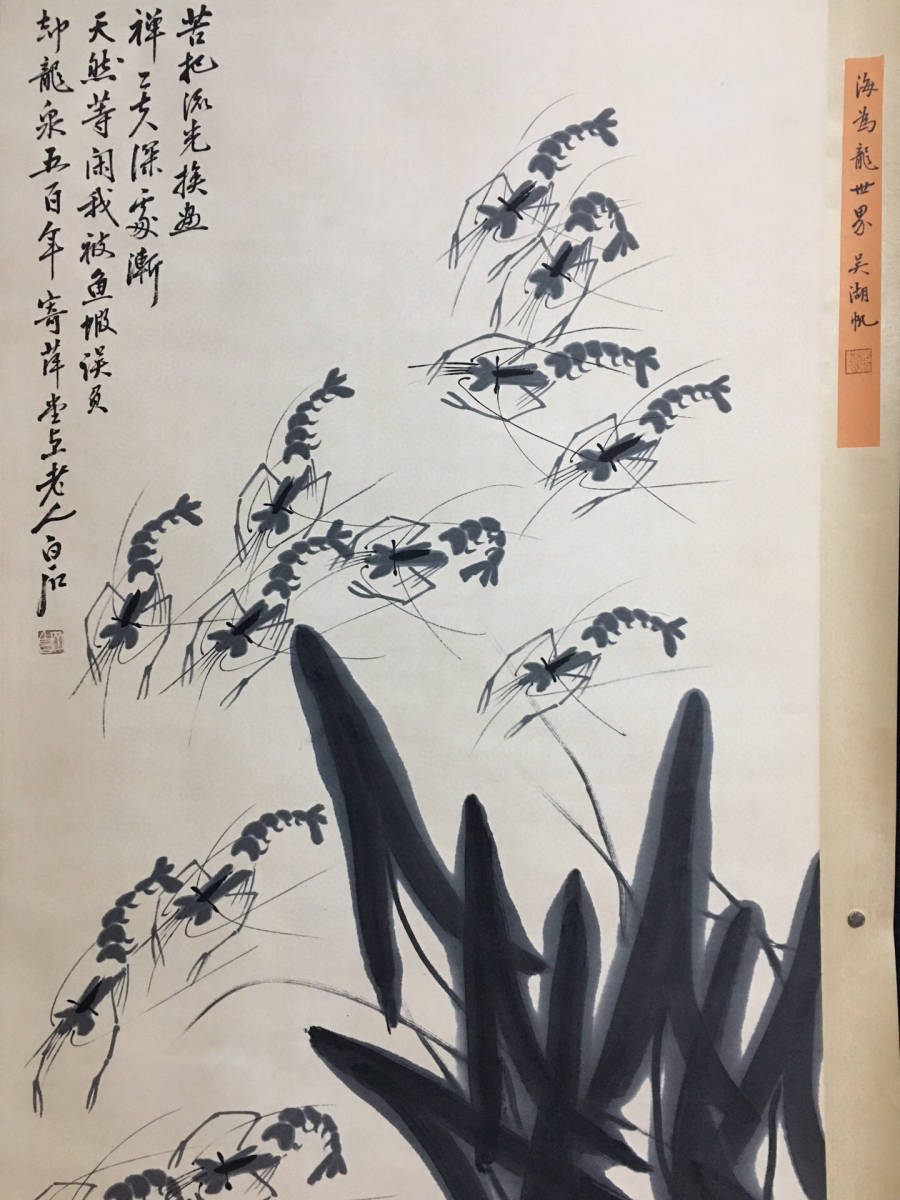 海為龍世界 吴湖帆
苦把流光換畫
禅工夫深處漸
天然等闲我被鱼蝦误負
却龍泉五百年 寄萍堂上老人白石